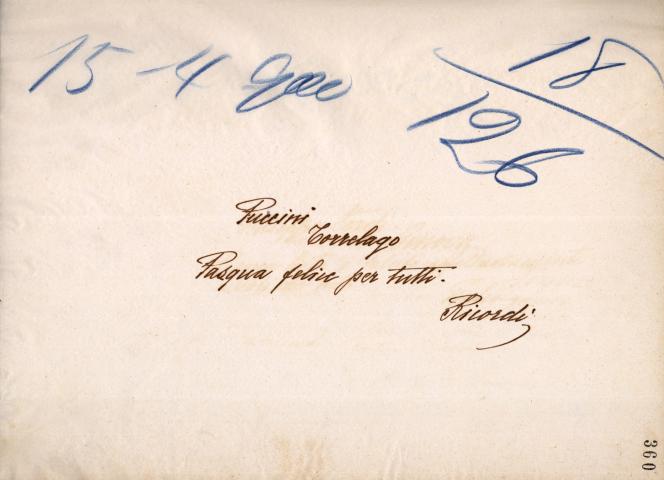 15-4-900
18/126
Puccini
Torrelago
Pasqua felice per tutti.
Ricordi
360